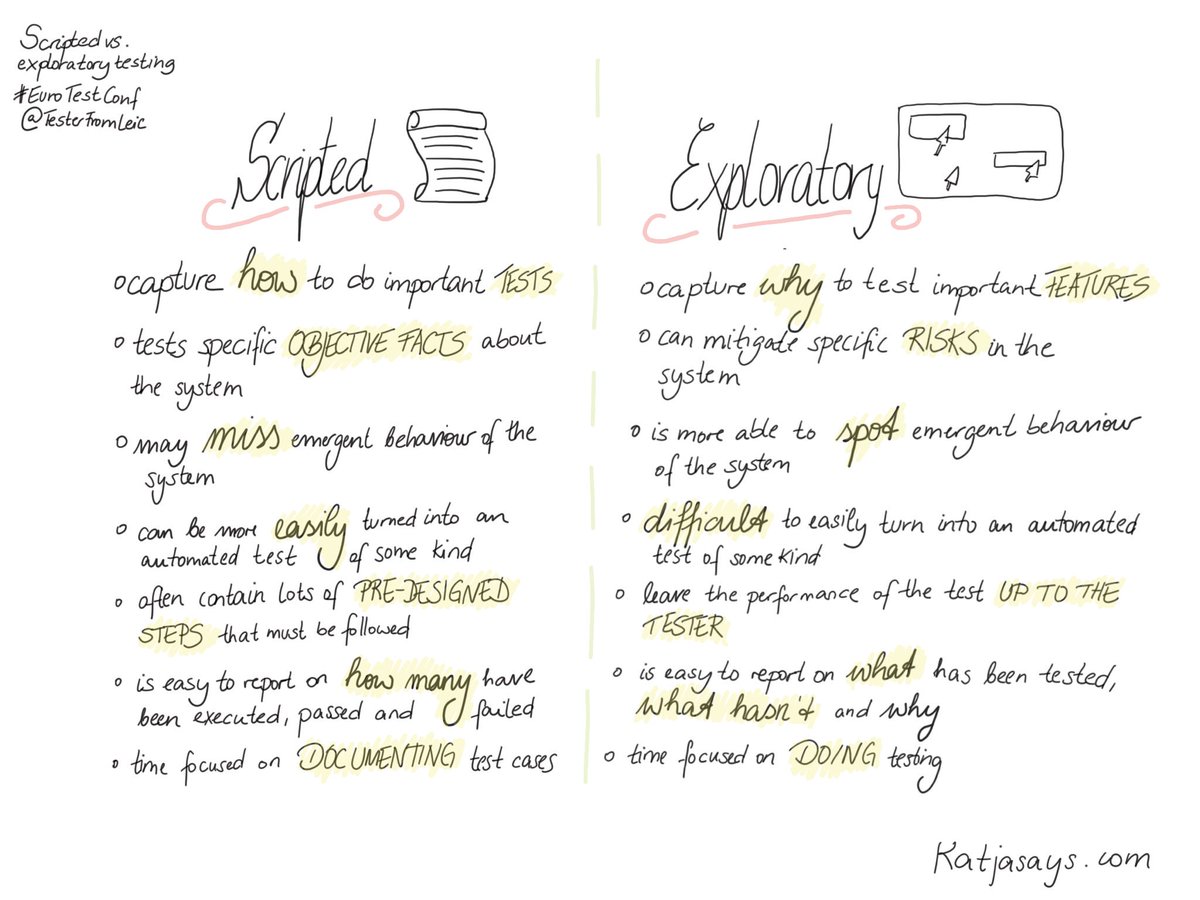 Scripted vs.
exploratory testing
#EuroTestConf
@TesterFromLeic
Scripted
o capture how to do important TESTS
o tests specific OBJECTIVE FACTS about
the system
o may miss emergent behaviour of the
system
o can be more easily turned into an
automated test of some kind
o often contain lots of PRE-DESIGNED
STEPS that must be followed
o is easy to report on how many have
been executed, passed and failed
o time focused on DOCUMENTING test cases
Exploratory
o capture why to test important FEATURES
o can mitigate specific RISKS in the
system
o is more able to spot emergent behaviour
of the system
o difficult to easily turn into an automated
test of some kind
o leave the performance of the test UP TO THE
TESTER
o is easy to report on what has been tested,
what hasn't and why
o time focused on DOING testing
Katjasays.com